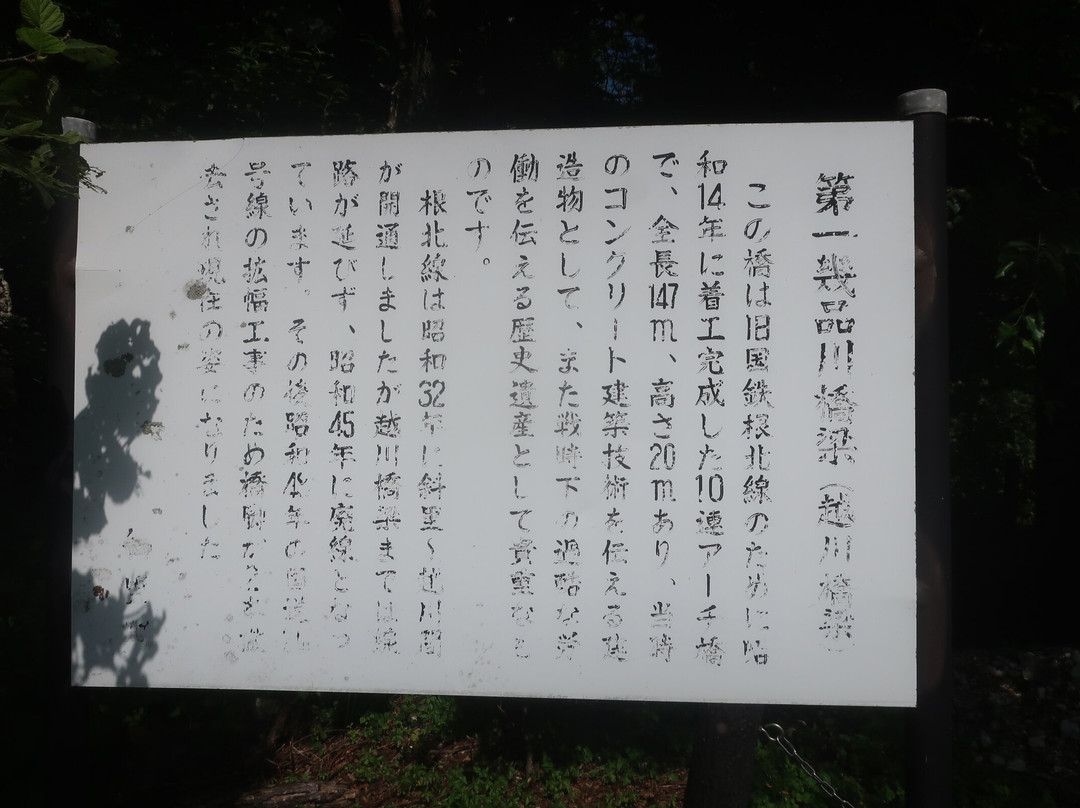 第一幾品川橋梁（越川橋梁）
この橋は旧国鉄根北線のために昭
和14年に着工完成した10連アーチ橋
で、全長147m、高さ20mあり、当時
のコンクリート建築技術を伝える建
造物として、また戦時下の過酷な労
働を伝える歴史遺産として貴重なも
のです。
根北線は昭和32年に斜里〜越川間
が開通しましたが越川橋梁までは線
路が延びず、昭和45年に廃線となっ
ています。その後昭和年の国道
号線の拡幅工事のため橋脚が撤
去され現在の姿になりました